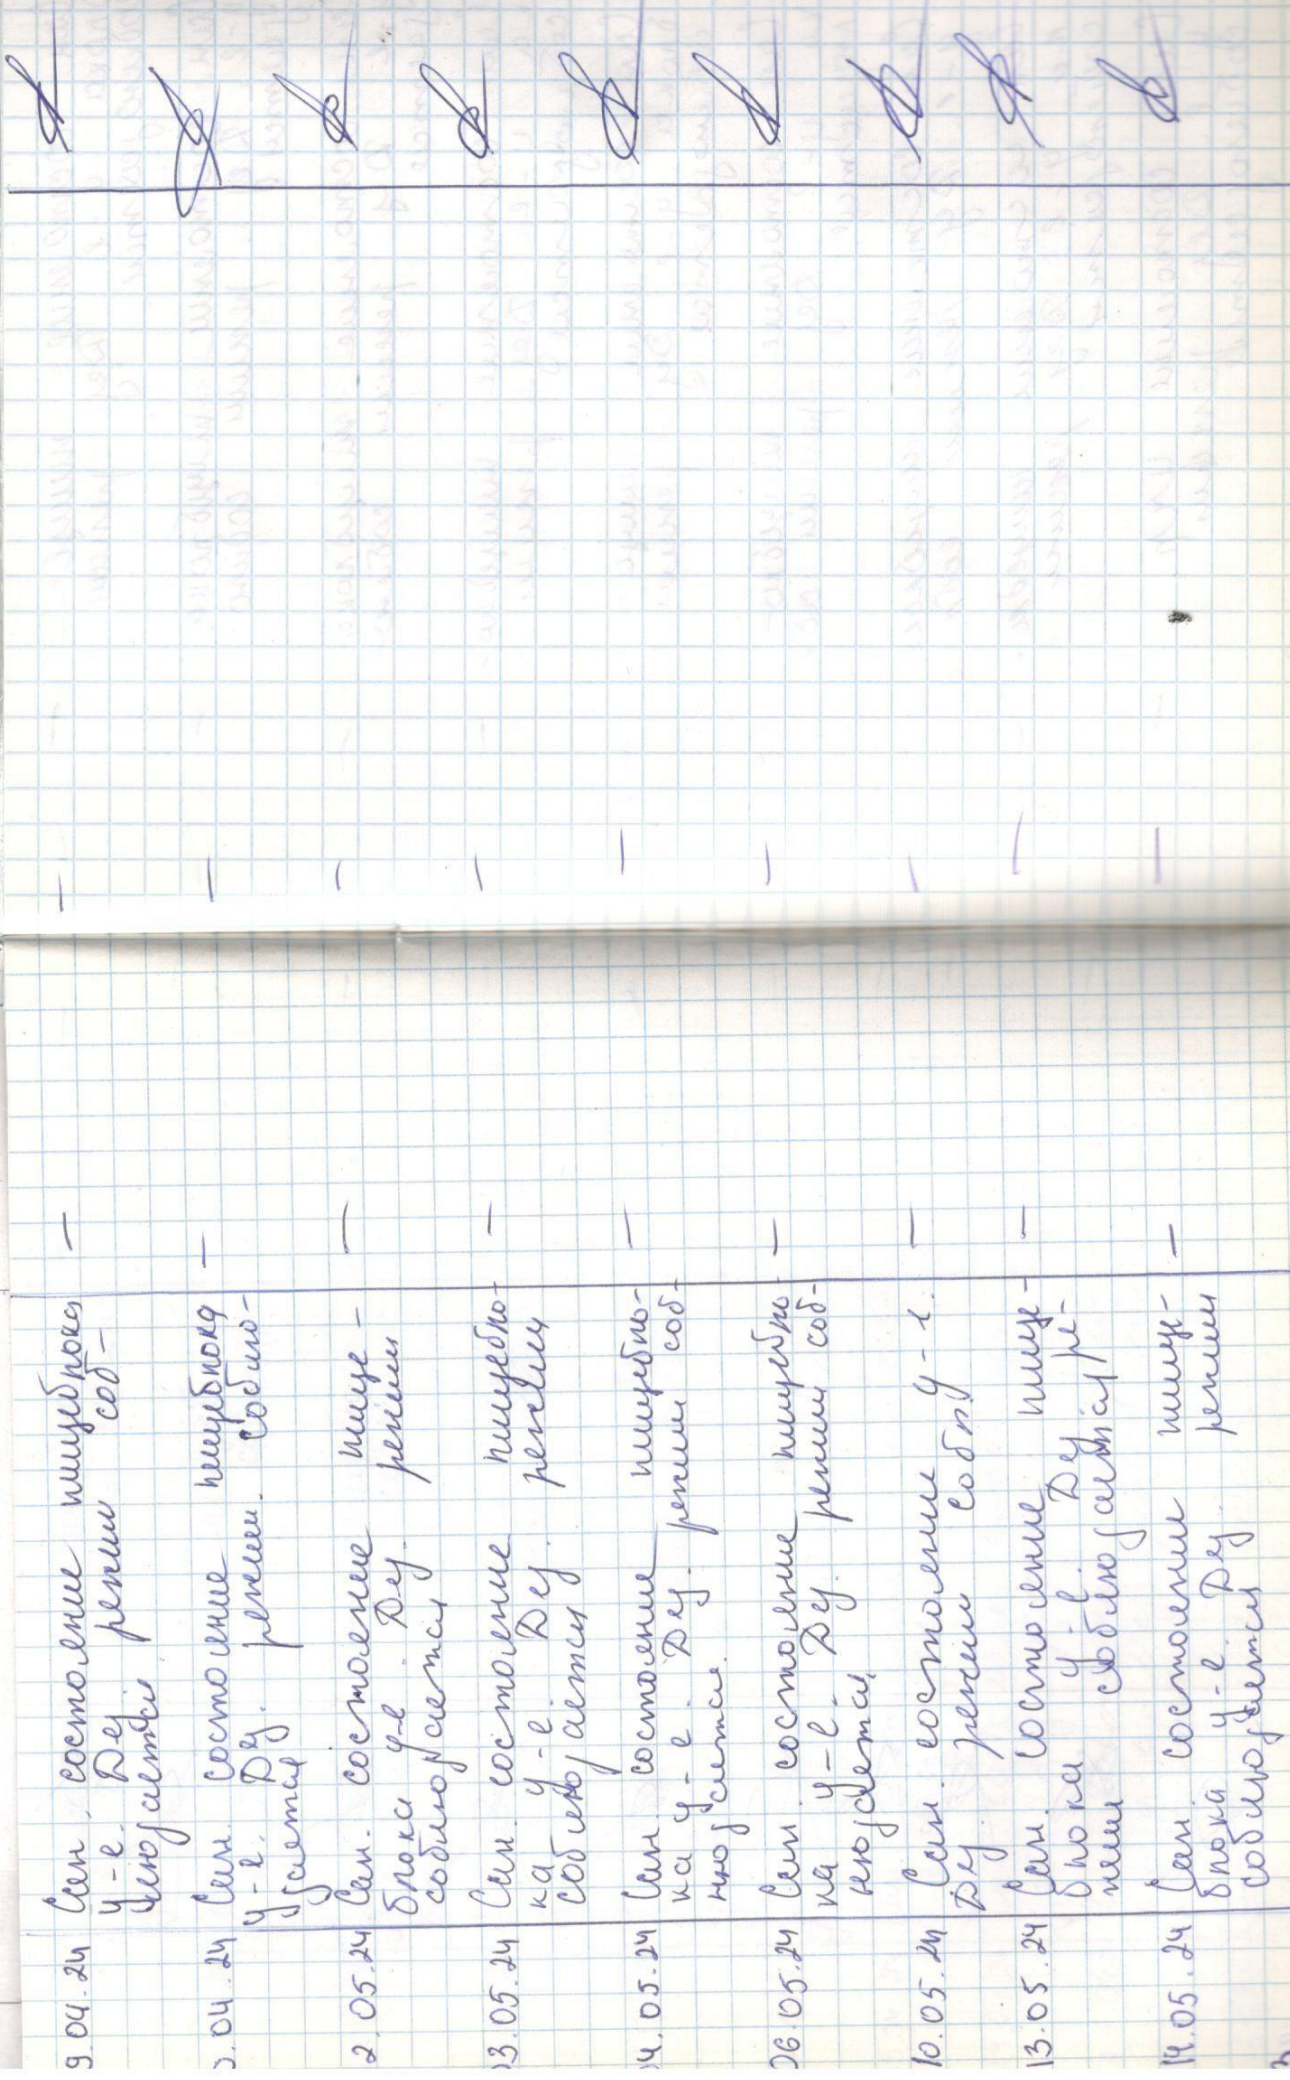 9.04.24 Сан. состояние пищеблока —
у-е. Дез. режим соб-
людается
0.04.24 Сан. состояние пищеблока —
у-е. Дез. режим соблю-
дается
2.05.24 Сан. состояние пище-
блока у-е Дез. режим
соблюдается
03.05.24 Сан. состояние пищебло-
ка у-е. Дез. режим
соблюдается
04.05.24 Сан. состояние пищебло-
ка у-е. Дез. режим соб-
людается.
06.05.24 Сан. состояние пищебло-
ка у-е. Дез. режим соб-
людается
10.05.24 Сан. состояние у-е.
Дез. режим собл.
13.05.24 Сан. состояние пище-
блока у-е. Дез ре-
жим соблюдается
14.05.24 Сан. состояние пище-
блока у-е. Дез режим
соблюдается